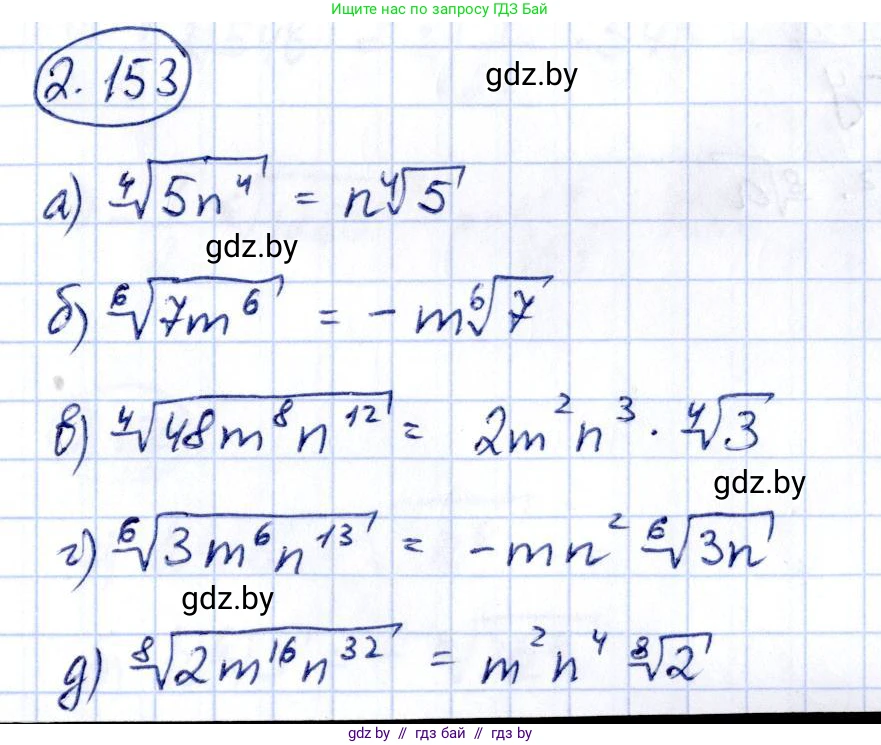 Ищите нас по запросу ГДЗ Бай
2.153
gdz.by
а) ∜(5n⁴) = n∜5
gdz.by
б) ⁶√(7m⁶) = - m⁶√7
в) ∜(48m⁸n¹²) = 2m²n³ · ∜3
gdz.by
г) ⁶√(3m⁶n¹³) = -mn² ⁶√(3n)
gdz.by
д) ⁸√(2m¹⁶n³²) = m²n⁴ ⁸√2
gdz by // гдз бай // gdz by